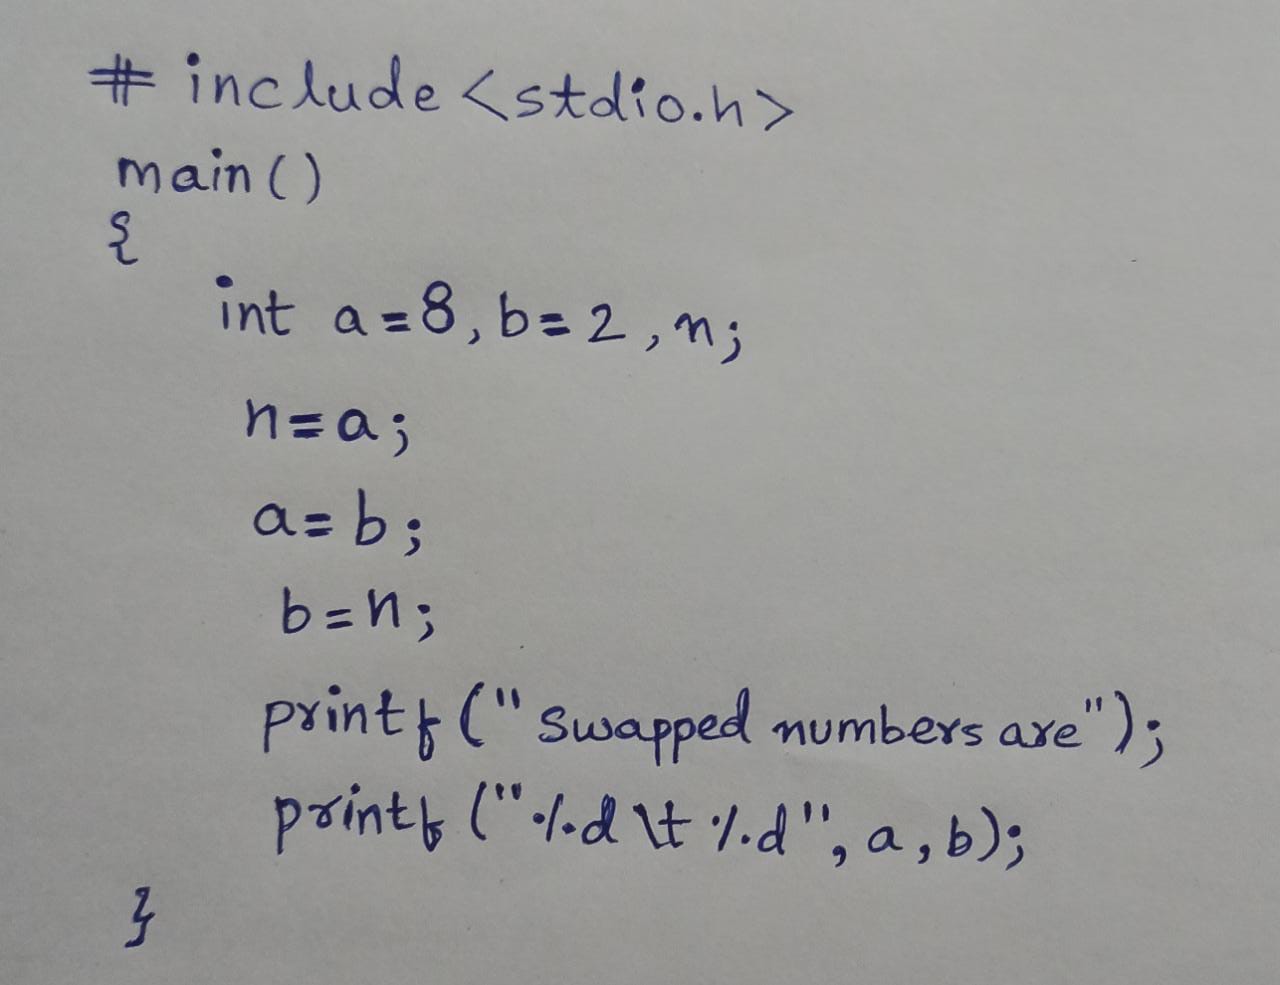 # include <stdio.h>
main()
{
int a=8, b=2, n;
n=a;
a=b;
b=n;
printf("Swapped numbers are");
printf("%d \t %d", a, b);
}